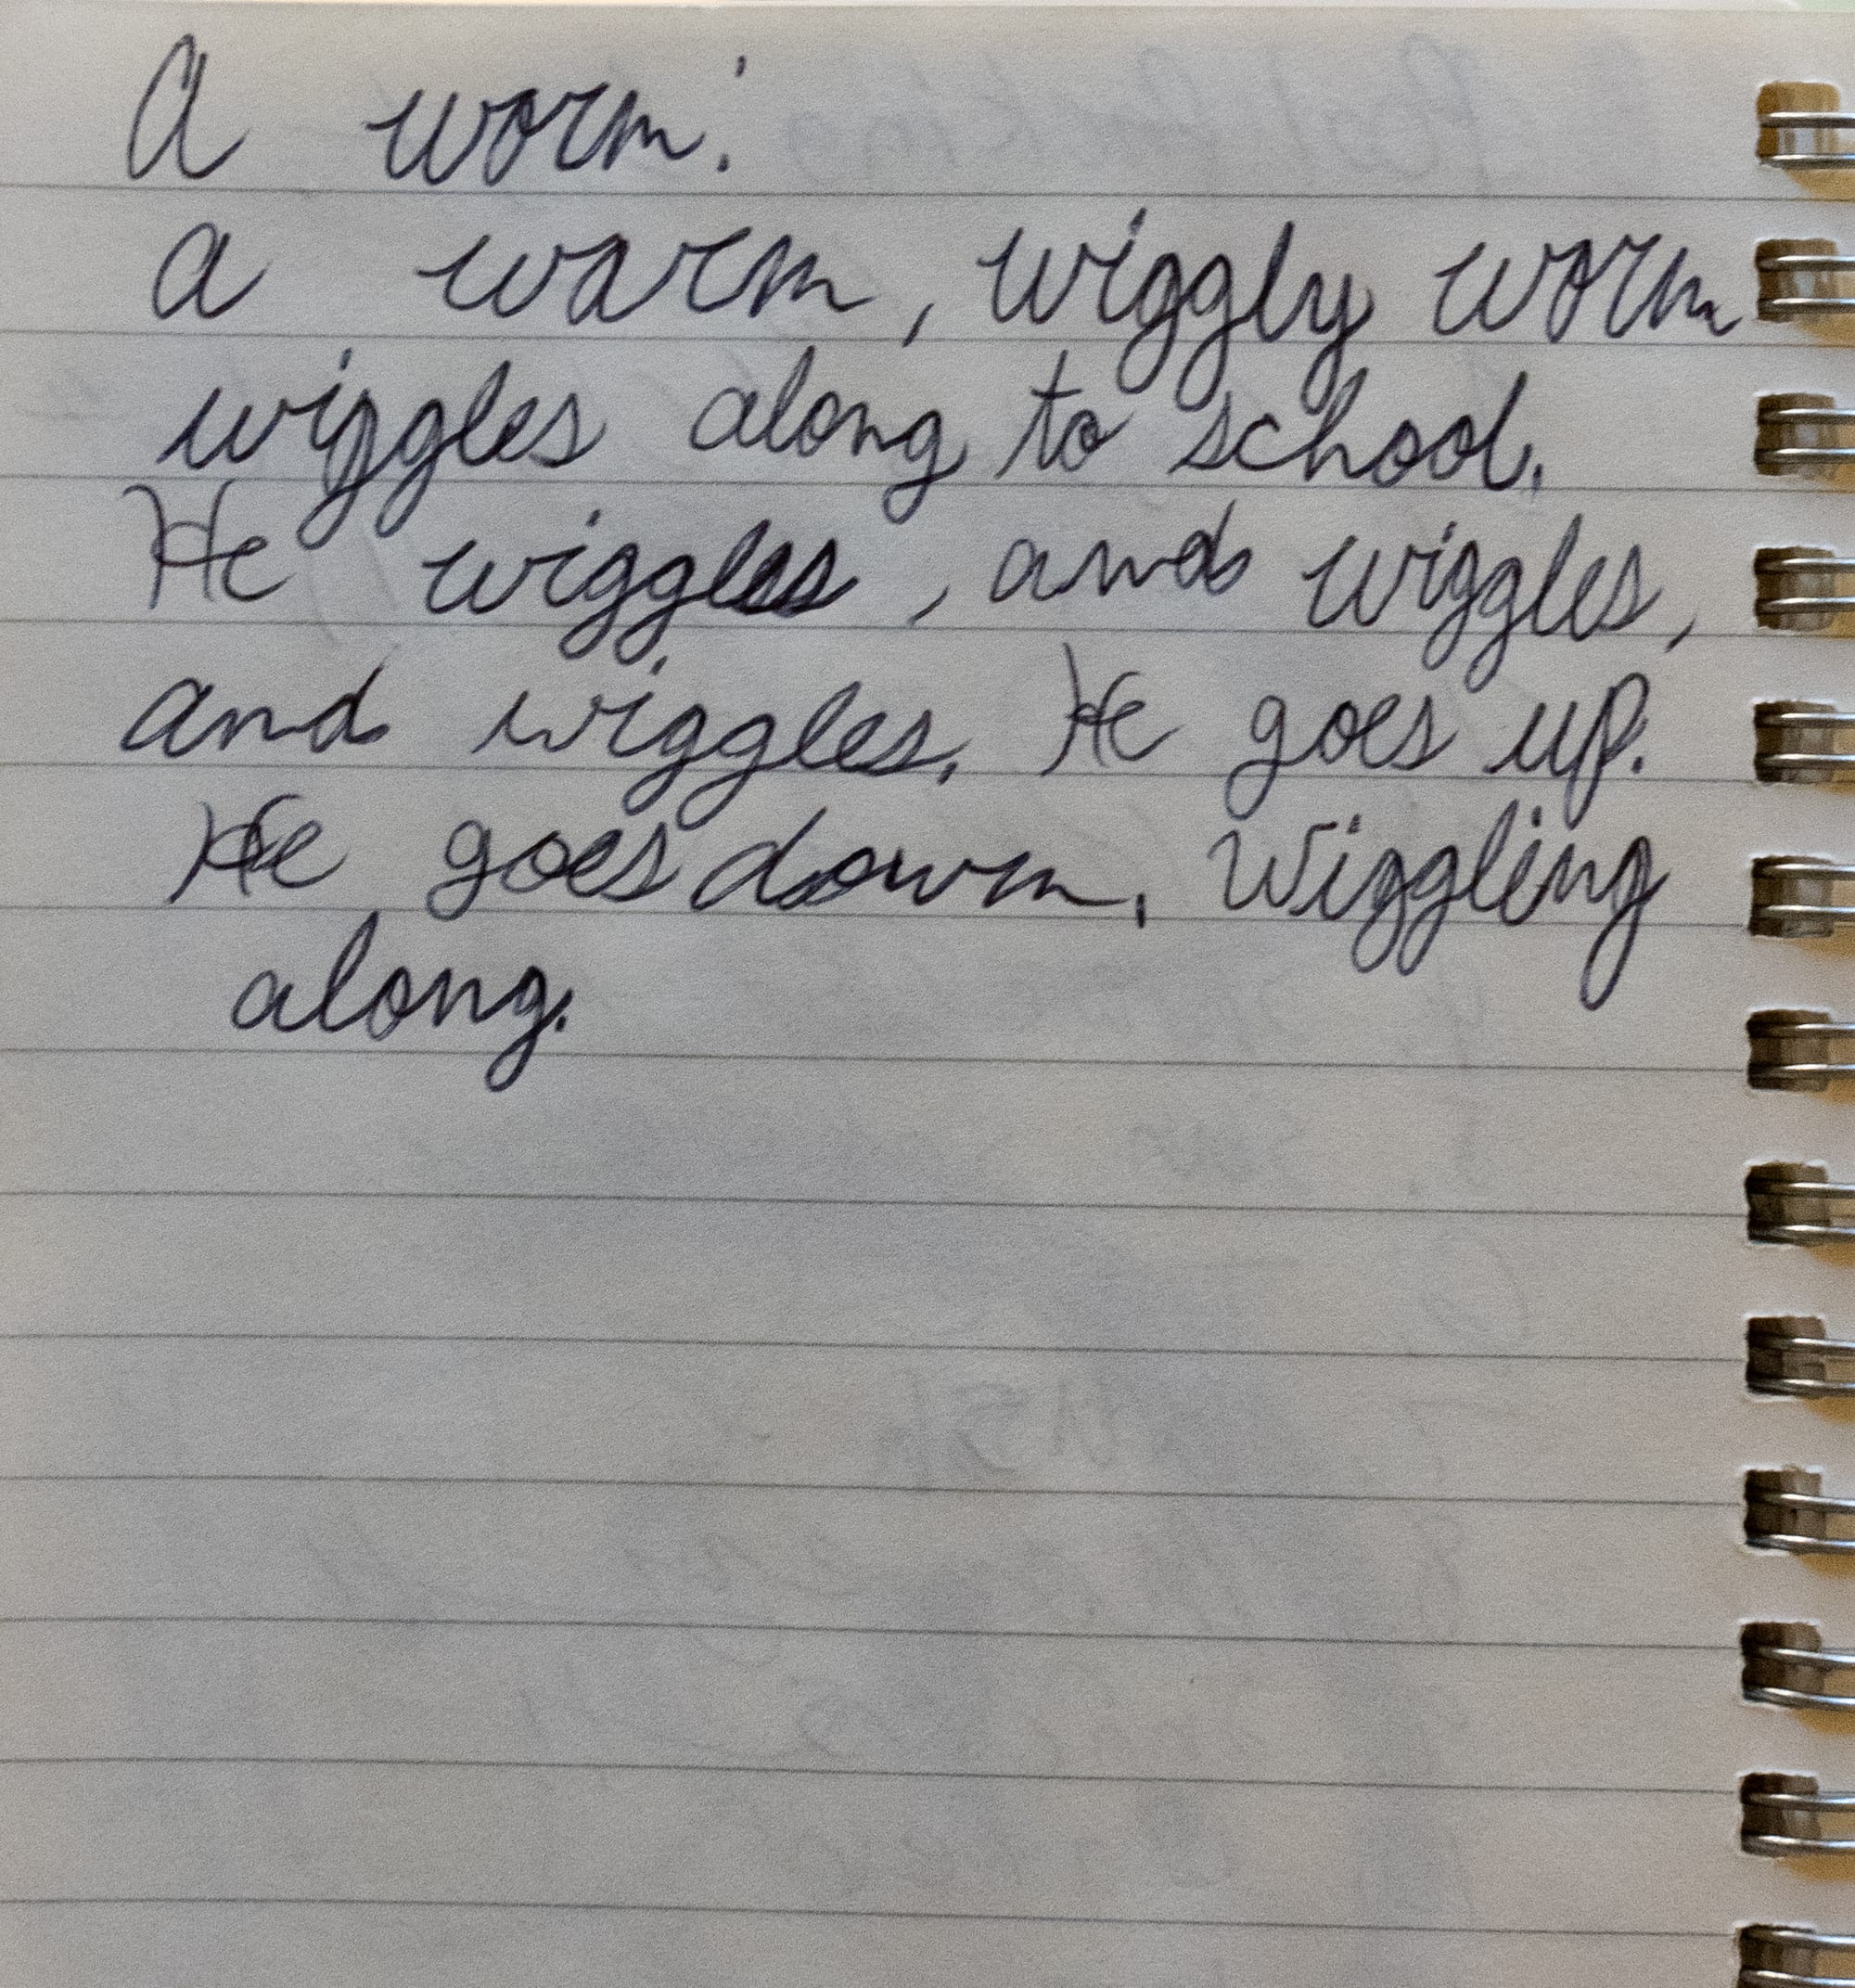 A worm.
a warm, wiggly worm
wiggles along to school.
He wiggles, and wiggles,
and wiggles. He goes up.
He goes down. Wiggling
along.